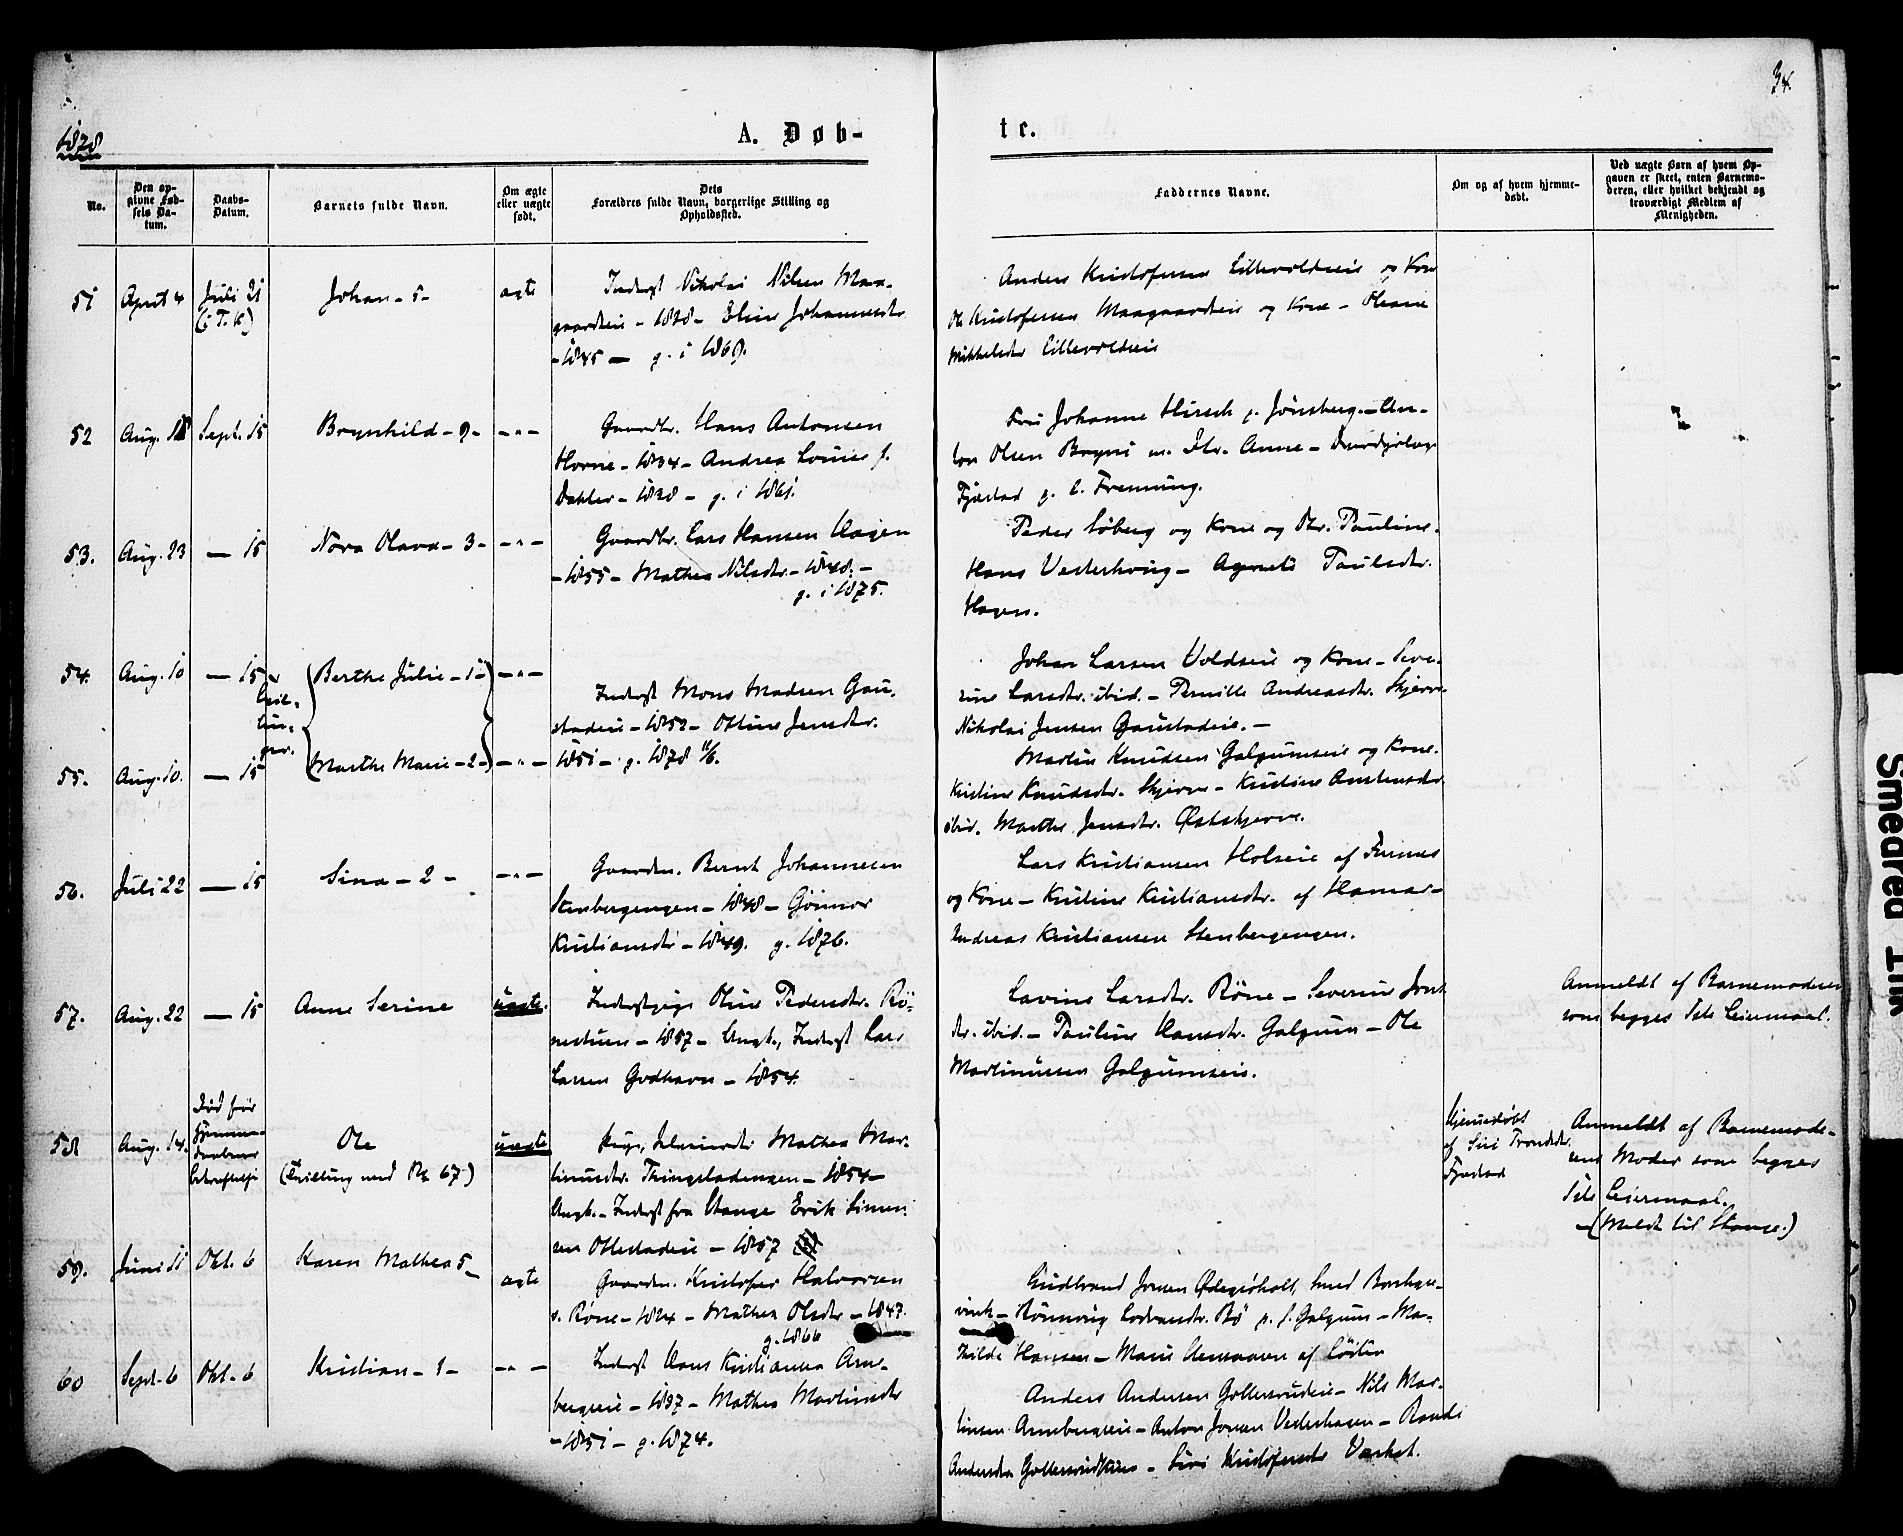 34.
1878
A. Døb-
te.
No.
Den op-
givne Fød-
sels Da-
tum.
Daabs-
Datum.
Barnets fulde Navn.
Om ægte
eller uægte
født.
Dets
Forældres fulde Navn, borgerlige Stilling og
Opholdssted.
Faddernes Navne.
Om og af hvem hjemme-
døbt.
Ved uægte Barn af hvem Op-
gaven er skeet, enten Barnemo-
deren, eller hvilket bekjendt og
troværdigt Medlem af
Menigheden.
51
April 4
Juli 21
(i T. K)
Johan - 5 -
ægte
Inderst Nikolai Nilsen Maa-
gaardseie - 1828 - Eline Johannesdtr
- 1845 - g. i 1869.
Anders Kristofersen Lillevoldseie og Kone
Ole Kristofersen Maagaardseie og Kone - Oleane
Mikkelsdtr Lillevoldseie
52
Aug. 18
Sept. 15
Brynhild - 9 -
- " -
Gaardbr. Hans Antonsen
Horne - 1834 - Andrea Louise f.
Dahler - 1838 - g. i 1861.
Fru Johanne Hirsch p. Jønsberg - An-
ton Olsen Bryni m. Dtr. Anne -
Fjæstad
53.
Aug. 23
— 15
Nora Olava - 3 -
- " -
Gaardbr. Lars Hansen Hagen
- 1855 - Mathea Nilsdtr. - 1848. -
g. i 1875.
Peder Søberg og Kone og Dtr. Pauline.
Hans Vesterhaug - Agnete Paulsdtr.
Hagen.
54.
Aug. 10
— 15
Tvil-
lin-
ger.
Berthe Julie - 1 -
- " -
Inderst Mons Madsen Gau-
stadeie - 1852 - Oline Jensdtr.
1851 - g. 1878 11/6.
Johan Larsen Voldseie og Kone - Seve-
rine Larsdtr. ibid. - Pernille Andreasdtr. Skjerve
Nikolai Jensen Gaustadeie. -
55.
Aug. 10.
— 15
Marthe Marie - 2 -
- " -
Martin Knudsen Galgumseie og Kone.
Kristine Knudsdtr. Skjerve - Kristine Amundsdtr
ibid. Marthe Jensdtr. Østskjerve.
56.
Juli 22
— 15
Sina - 2 -
- " -
Gaardm. Bernt Johannesen
Stenbergengen - 1848 - Gunnor
Kristiansdtr - 1849. g. 1876.
Lars Kristiansen Holseie af Furnes
og Kone - Kristine Kristiansdtr. af Hamar -
Andreas Kristiansen Stenbergengen.
57.
Aug. 22
— 15
Anne Serine
uægte.
Inderstpige Oline Pedersdtr. Rø-
nestuen - 1857 - Ungk., Inderst Lars
Larsen Godhavn - 1854.
Lavine Larsdtr. Røne - Severine Jons-
dtr. ibid. - Pauline Hansdtr. Galgum - Ole
Martinussen Galgumseie.
Anmeldt af Barnemoderen
som begges 1ste Leiermaal.
58
Aug. 14.
Død før
Hjemme-
daabens
bekræftelse
Ole
(Tvilling med No 67)
uægte
Pige, Mathea Mar-
tinusdtr. Thingstadengen - 1854 -
Ungk. - Inderst fra Stange Erik Simen-
sen Ottestadeie - 1857
Hjemmedøbt
af Siri Trondsdtr.
Fjæstad
Anmeldt af Barnemode-
rens Moder som begges
1ste Leiermaal.
- (Meldt til Stange.)
59.
Juni 11
Okt. 6
Karen Mathea 5 -
ægte
Gaardm. Kristofer Halvorsen
v. Røne - 1824 - Mathea Olsdtr - 1847.
g. 1866
Gudbrand Jonsen Ødegårdholt, Smed
Rønnaug Lodvensdtr. Bø p. f. Galgum - Ma-
thilde Hansen - Marie af Løiten
60
Sept. 6
Okt. 6
Kristian - 1 -
- " -
Inderst Hans Kristiansen Arne-
bergseie - 1837 - Mathea Martinsdtr
- 1851 - g. 1874.
Anders Andersen Gollersrudeie - Nils Mar-
tinsen Arnebergseie - Anton Jonsen Vesterhagen - Randi
Andersdtr Gollersrudseie - Siri Kristofersdtr Værket.
Smeared Ink